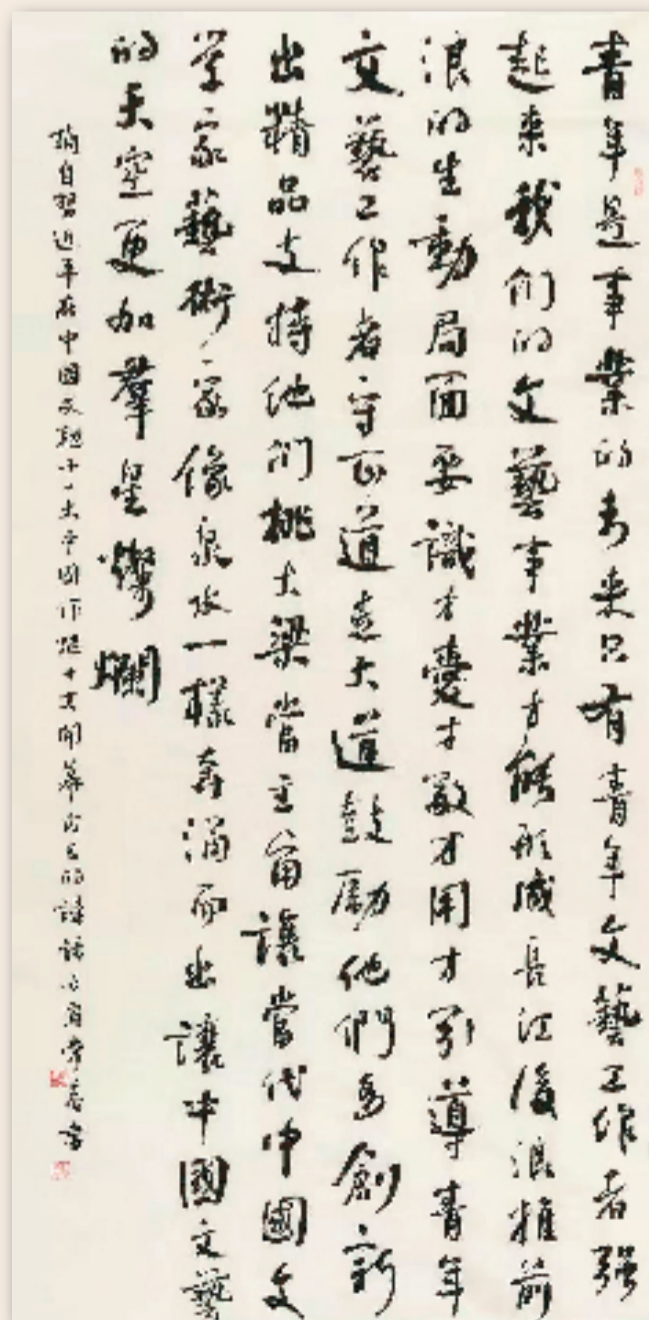 青年是事業的未来只有青年文藝工作者强
起来我们的文藝事業才能形成長江後浪推前
浪的生動局面要識才愛才敬才用才引導青年
文藝工作者守正道走大道鼓励他們多創新
出精品支持他们挑大梁當主角讓當代中國文
学家藝術家像泉水一樣奔涌而出讓中國文藝
的天空更加羣星燦爛
摘自習近平在中國文聯十一大中國作協十大開幕式上的講話